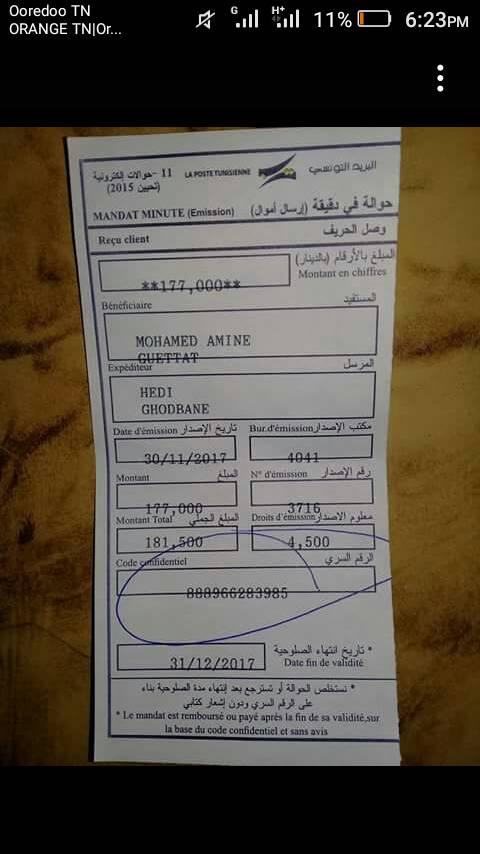 Ooredoo TN
ORANGE TN|Or...
G H+ 11% 6:23PM
11 -حوالات إلكترونية
(تحيين 2015)
LA POSTE TUNISIENNE
البريد التونسي
MANDAT MINUTE (Emission) حوالة في دقيقة (إرسال أموال)
Reçu client وصل الحريف
المبلغ بالأرقام (بالدينار)
Montant en chiffres
**177,000**
Bénéficiaire المستفيد
MOHAMED AMINE
GUETTAT
Expéditeur المرسل
HEDI
GHODBANE
Date d'émission تاريخ الإصدار Bur.d'émission مكتب الإصدار
30/11/2017 4041
Montant المبلغ N° d'émission رقم الإصدار
177,000 3716
Montant Total المبلغ الجملي Droits d'émission معلوم الإصدار
181,500 4,500
Code confidentiel الرقم السري
888966283985
* تاريخ انتهاء الصلوحية
31/12/2017 Date fin de validité
* تستخلص الحوالة أو تسترجع بعد إنتهاء مدة الصلوحية بناء
على الرقم السري ودون إشعار كتابي
* Le mandat est remboursé ou payé après la fin de sa validité,sur
la base du code confidentiel et sans avis